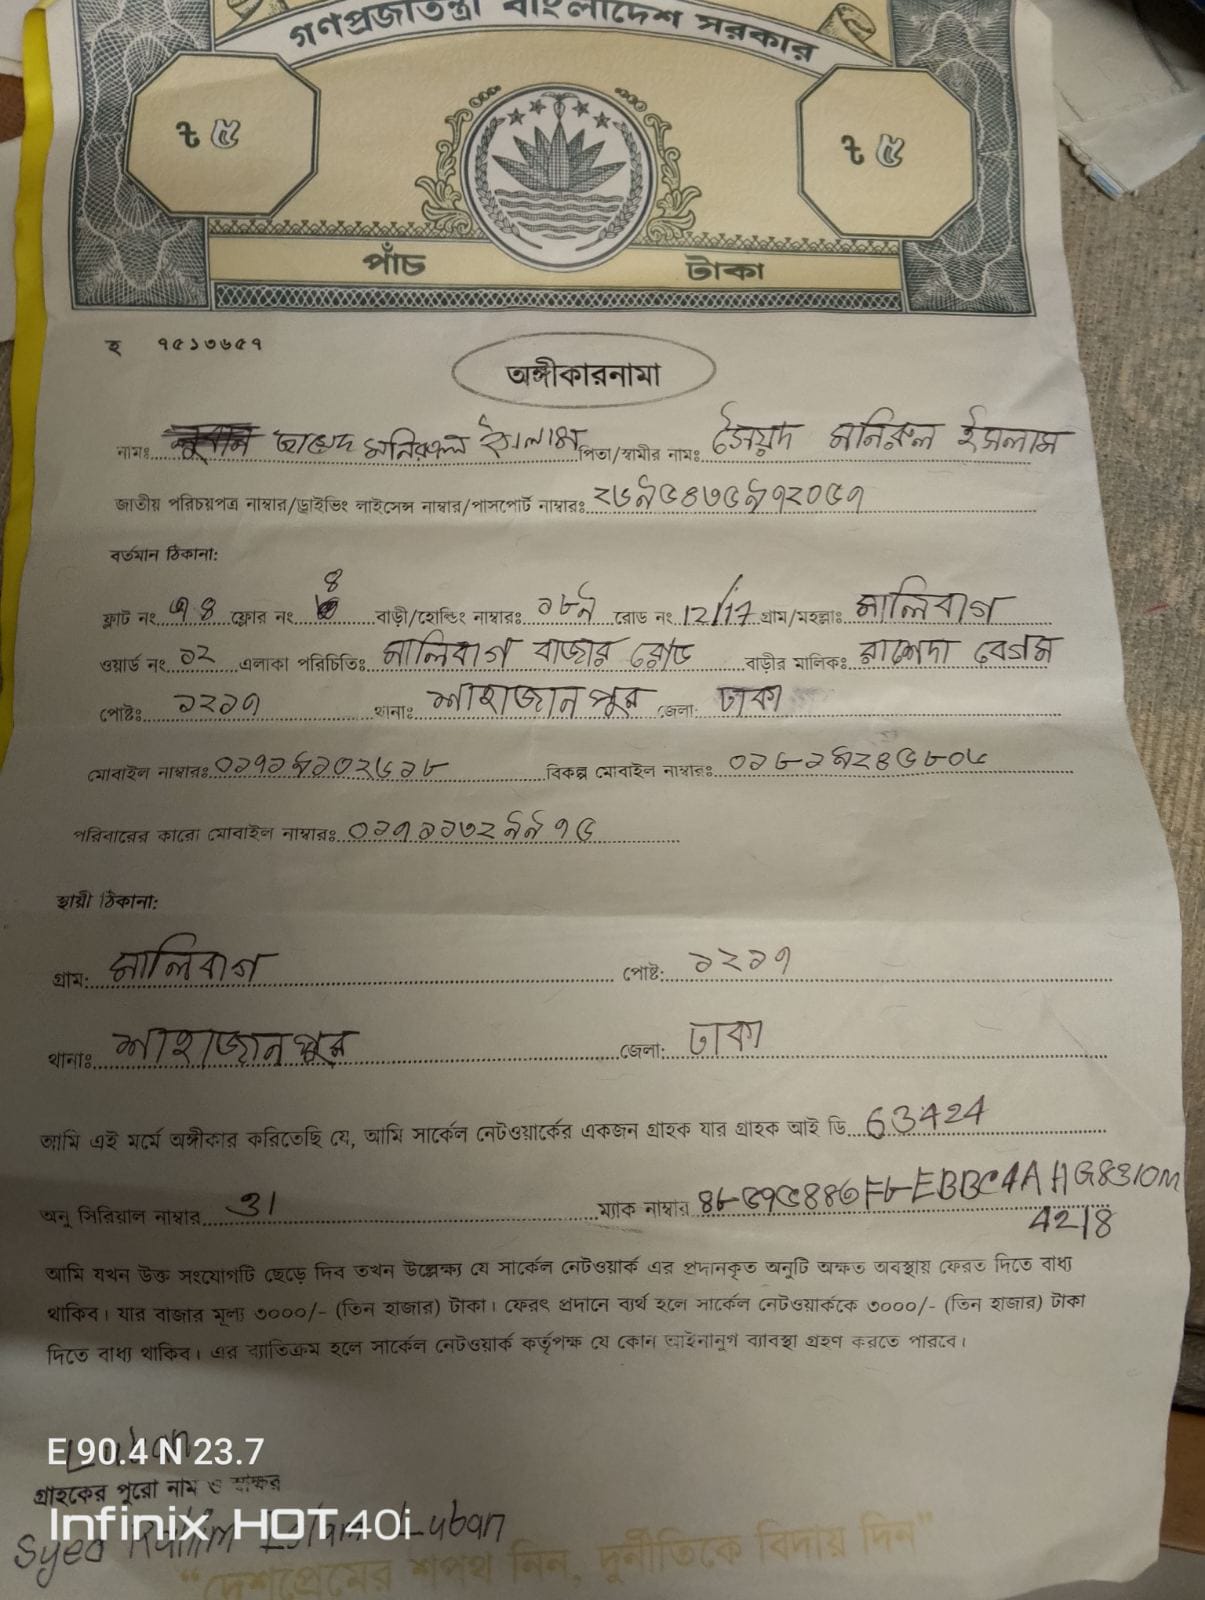 গণপ্রজাতন্ত্রী বাংলাদেশ সরকার
৳ ৫ ৳ ৫
পাঁচ টাকা
হ ৭৫১৩৬৫৭
অঙ্গীকারনামা
নামঃ মনিরুল ইসলাম পিতা/স্বামীর নামঃ সৈয়দ মনিরুল ইসলাম
জাতীয় পরিচয়পত্র নাম্বার/ড্রাইভিং লাইসেন্স নাম্বার/পাসপোর্ট নাম্বারঃ
বর্তমান ঠিকানা:
ফ্লাট নং এ৪ ফ্লোর নং ৪ বাড়ী/হোল্ডিং নাম্বারঃ ১৮৯ রোড নং 12/17 গ্রাম/মহল্লাঃ মালিবাগ
ওয়ার্ড নং ১২ এলাকা পরিচিতিঃ মালিবাগ বাজার রোড বাড়ীর মালিকঃ রাশেদা বেগম
পোষ্টঃ ১২১৭ থানাঃ শাহাজানপুর জেলা: ঢাকা
মোবাইল নাম্বারঃ ০১৭১৯১০২৬১৮ বিকল্প মোবাইল নাম্বারঃ ০১৮১৯২৪৫৮০৬
পরিবারের কারো মোবাইল নাম্বারঃ ০১৭১১৩২৯৯৭৫
স্থায়ী ঠিকানা:
গ্রাম: মালিবাগ পোষ্ট: ১২১৭
থানাঃ শাহাজানপুর জেলা: ঢাকা
আমি এই মর্মে অঙ্গীকার করিতেছি যে, আমি সার্কেল নেটওয়ার্কের একজন গ্রাহক যার গ্রাহক আই ডি 63424
অনু সিরিয়াল নাম্বার 31 ম্যাক নাম্বার
4218
আমি যখন উক্ত সংযোগটি ছেড়ে দিব তখন উল্লেক্ষ্য যে সার্কেল নেটওয়ার্ক এর প্রদানকৃত অনুটি অক্ষত অবস্থায় ফেরত দিতে বাধ্য
থাকিব। যার বাজার মূল্য ৩০০০/- (তিন হাজার) টাকা। ফেরৎ প্রদানে ব্যর্থ হলে সার্কেল নেটওয়ার্ককে ৩০০০/- (তিন হাজার) টাকা
দিতে বাধ্য থাকিব। এর ব্যাতিক্রম হলে সার্কেল নেটওয়ার্ক কর্তৃপক্ষ যে কোন আইনানুগ ব্যাবস্থা গ্রহণ করতে পারবে।
Luban
E 90.4 N 23.7
গ্রাহকের পুরো নাম ও স্বাক্ষর
Infinix HOT 40i
Syed Rahim Islam Luban
“দেশপ্রেমের শপথ নিন, দুর্নীতিকে বিদায় দিন”